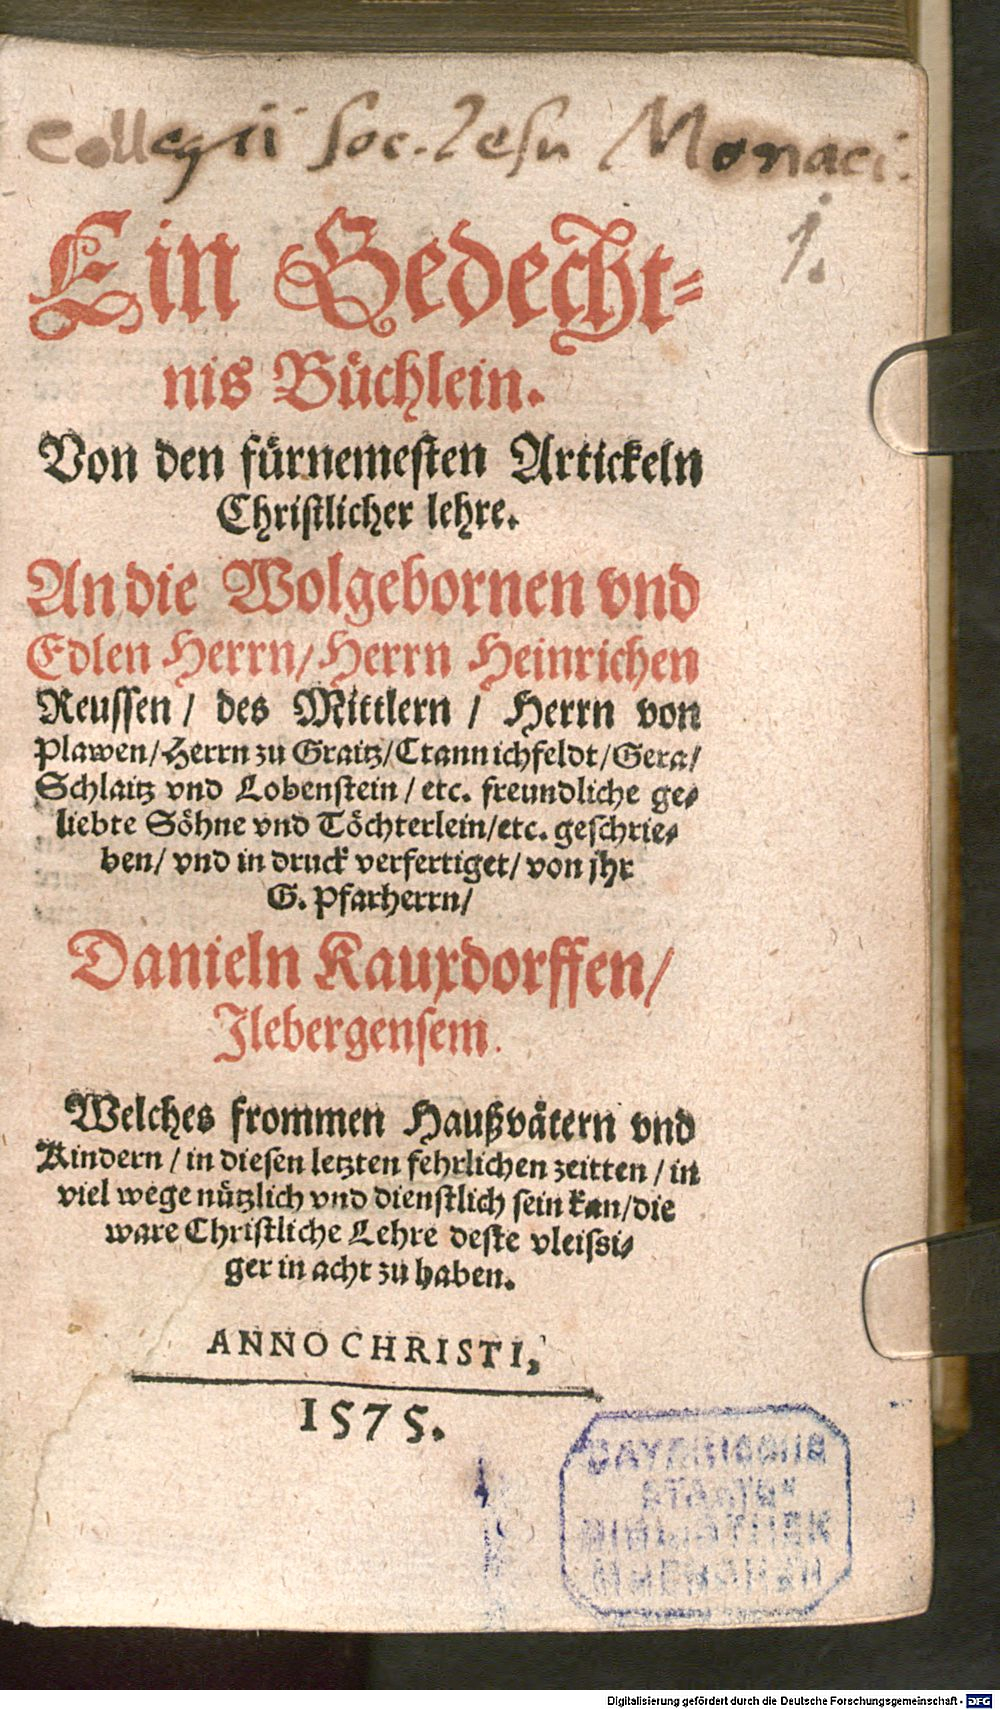 Collegii Soc. Iesu Monaci.
1.
Ein Gedecht⸗
nis Büchlein.
Von den fürnemesten Artickeln
Christlicher lehre.
An die Wolgebornen vnd
Edlen Herrn/ Herrn Heinrichen
Reussen/ des Mittlern/ Herrn von
Plawen/ Herrn zu Graitz/ Crannichfeldt/ Gera/
Schlaitz vnd Lobenstein/ etc. freundliche ge⸗
liebte Söhne vnd Töchterlein/ etc. geschrie⸗
ben/ vnd in druck verfertiget/ von jhr
G. Pfarherrn/
Danieln Kauxdorffen/
Jlebergensem.
Welches frommen Haußvätern vnd
Kindern/ in diesen letzten fehrlichen zeitten/ in
viel wege nützlich vnd dienstlich sein kan/ die
ware Christliche Lehre deste vleissi⸗
ger in acht zu haben.
ANNO CHRISTI,
1575.
Digitalisierung gefördert durch die Deutsche Forschungsgemeinschaft - DFG